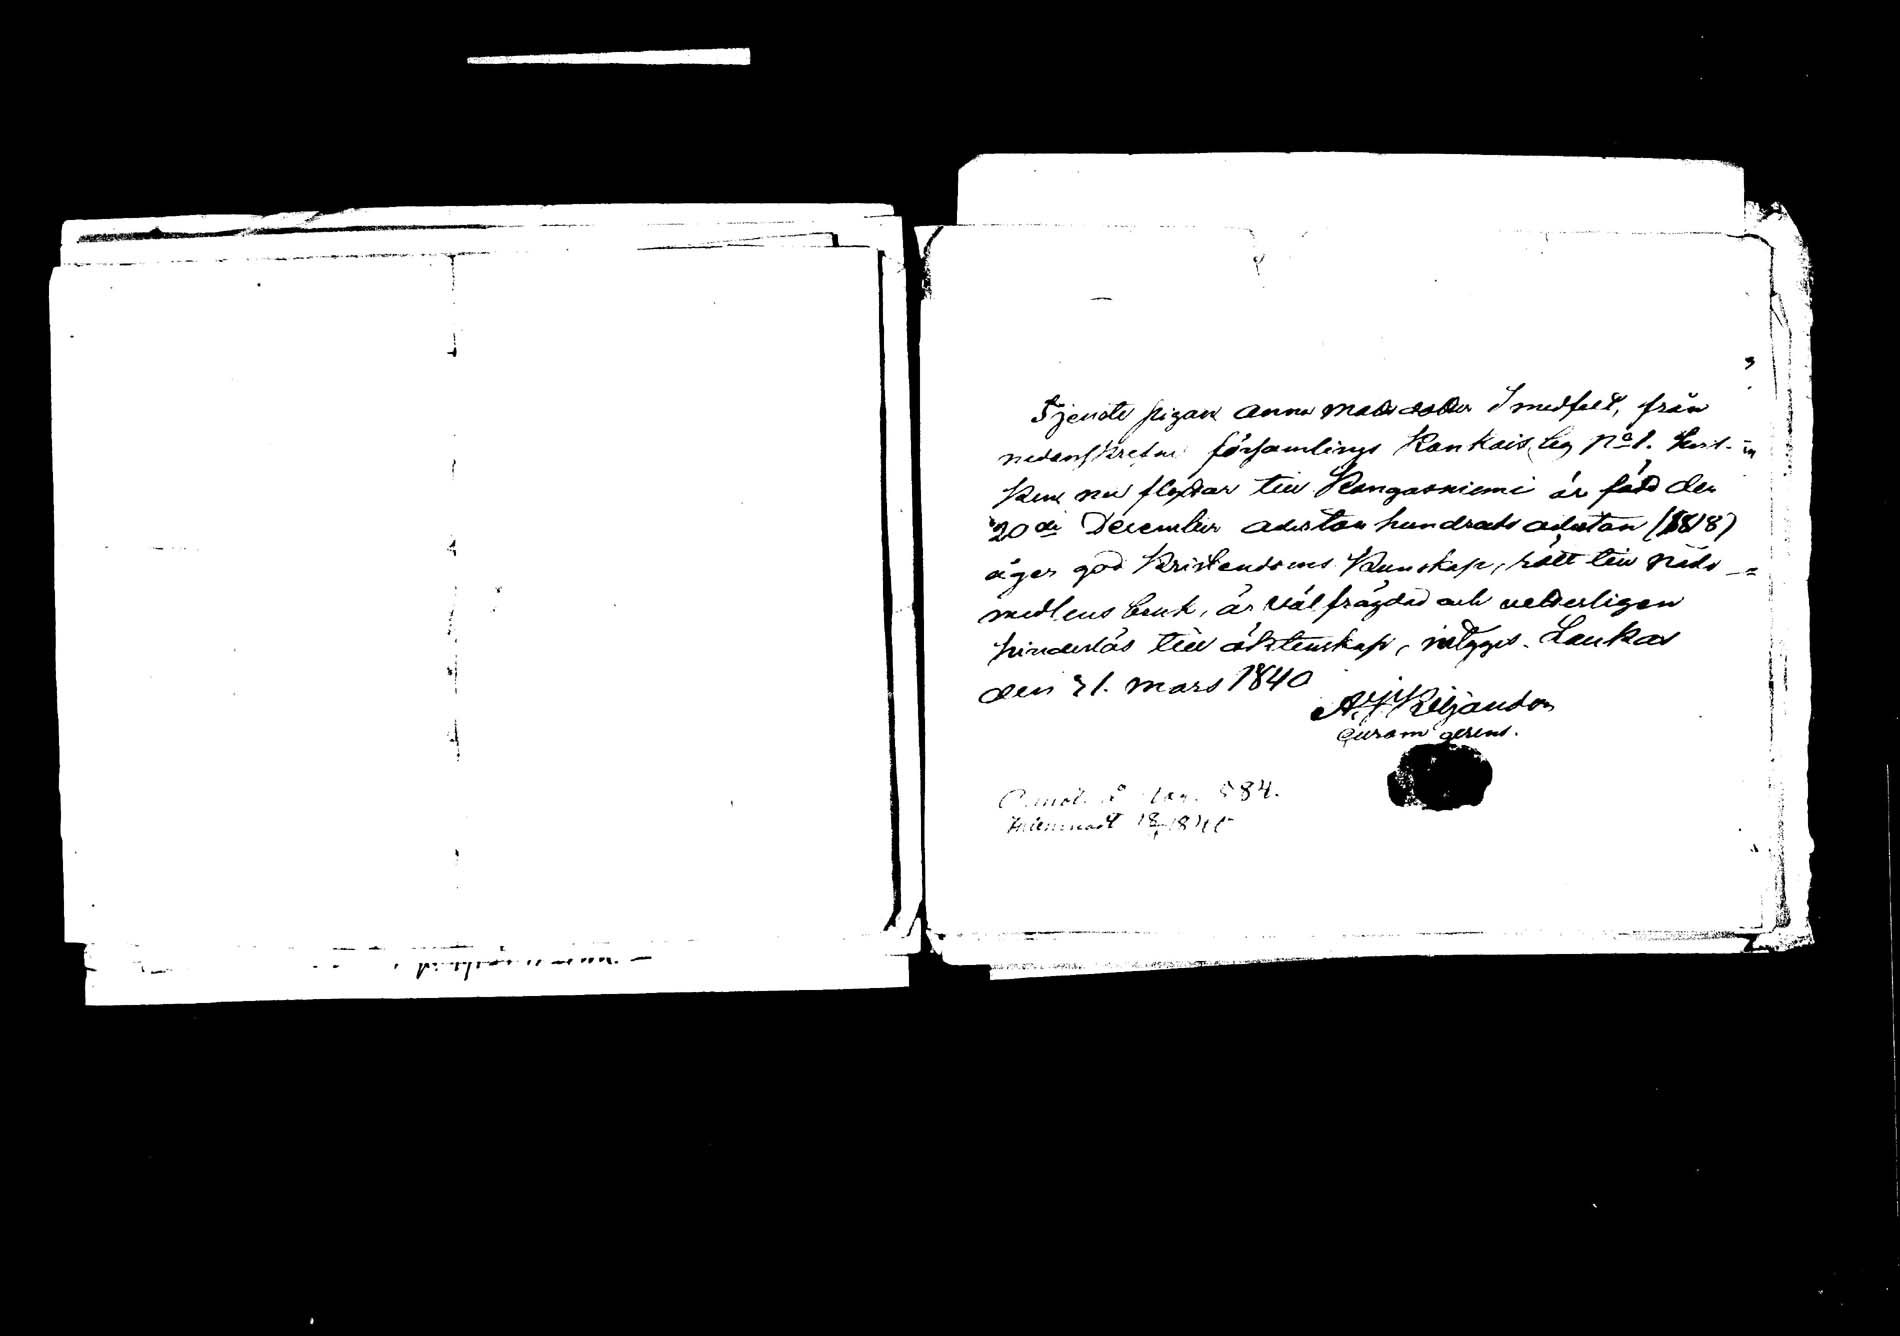 Tjenste pigan Anna Mads dotter Smedfelt, från
nedanskrefne församlings Kankais by No 1. hvil-
ken nu flyttar till Kangasniemi är född den
20de December adertonhundrade aderton (1818)
äger god Kristendoms Kunskap, rätt till nåde-
medlens bruk, är välfrägdad och vetterligen
hinderlös till äktenskap, intygas. Laukas
den 21. Mars 1840
A. F. Kiljander
Curam gerens.
584.